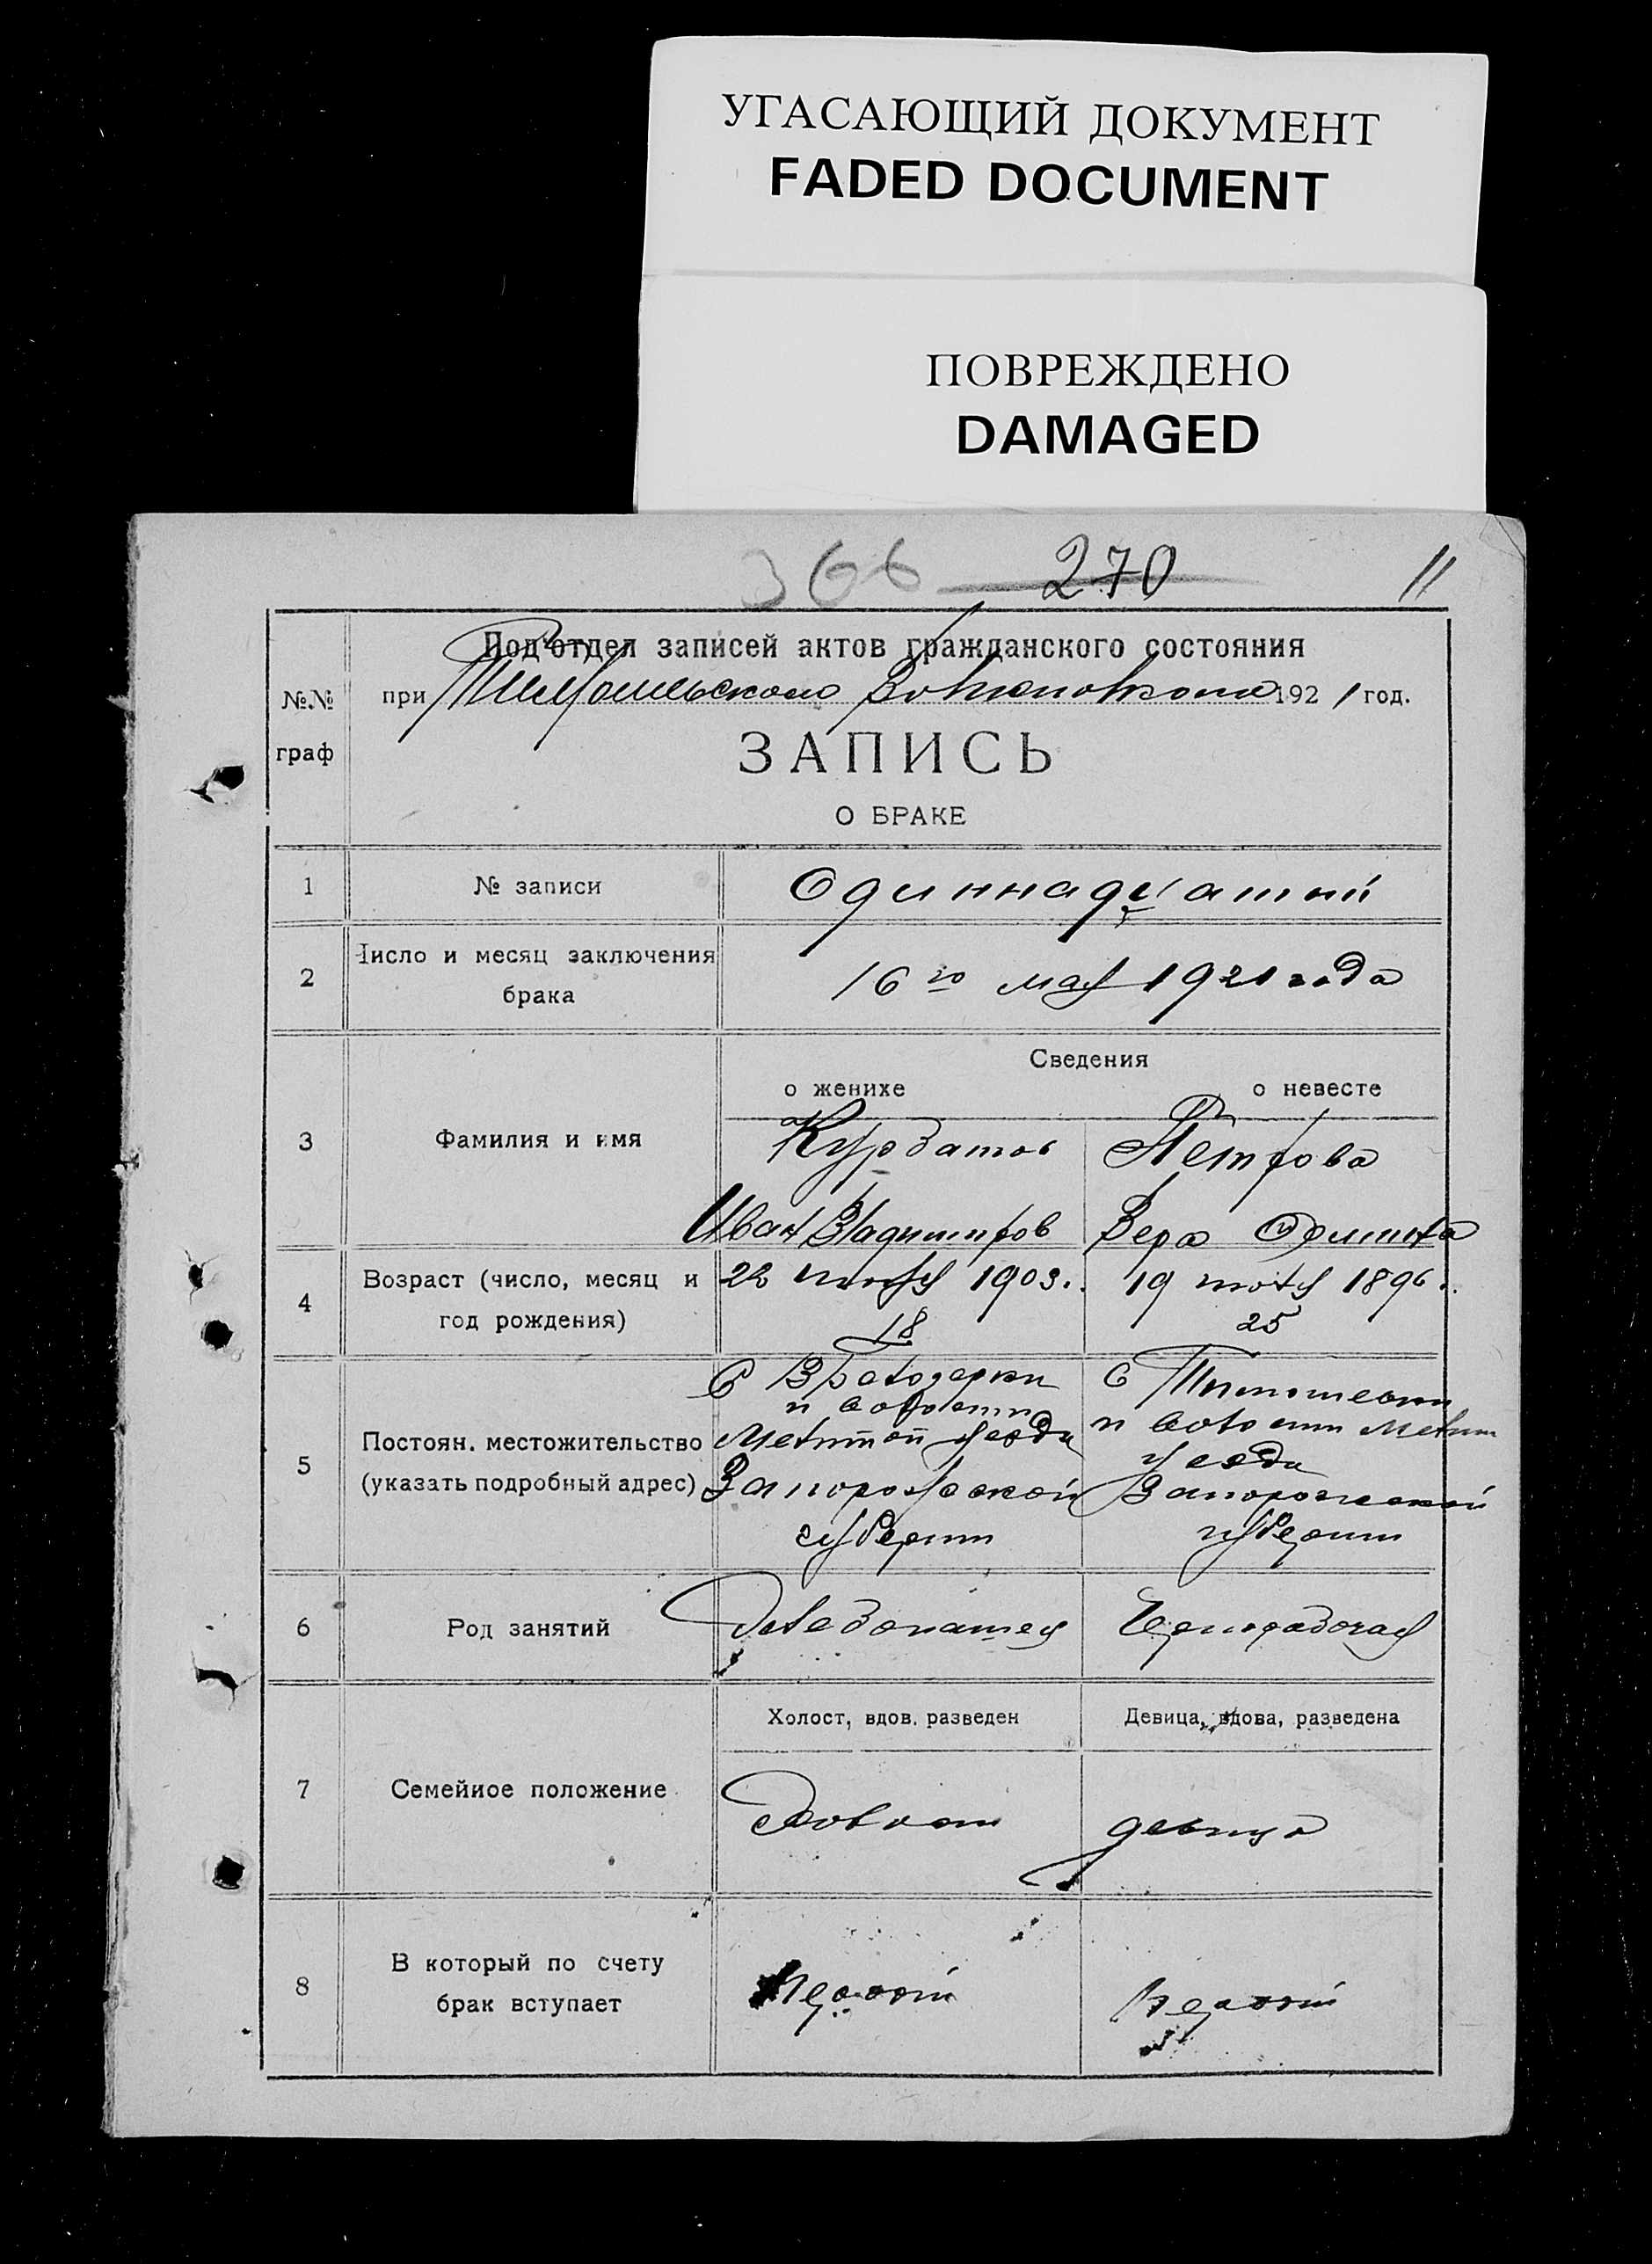 УГАСАЮЩИЙ ДОКУМЕНТ
FADED DOCUMENT
ПОВРЕЖДЕНО
DAMAGED
366 270 11
Под'отдел записей актов гражданского состояния
№№ при 1921 год.
граф
ЗАПИСЬ
О БРАКЕ
1 № записи Одиннадцатый
2 Число и месяц заключения брака 16го мая 1921 года
Сведения
о женихе о невесте
3 Фамилия и имя Курбатов Петрова
Иван Владимиров Вера
4 Возраст (число, месяц и год рождения) 22 1903. 19 1896.
18 25
5 Постоян. местожительство (указать подробный адрес)
С С
и волости и волости
Мелитоп уезда Мелит
уезда
Запорожской Запорожской
губернии губернии
6 Род занятий Хлебопашец Чернорабочая
Холост, вдов. разведен Девица, вдова, разведена
7 Семейное положение Холост девица
8 В который по счету брак вступает Первый первый